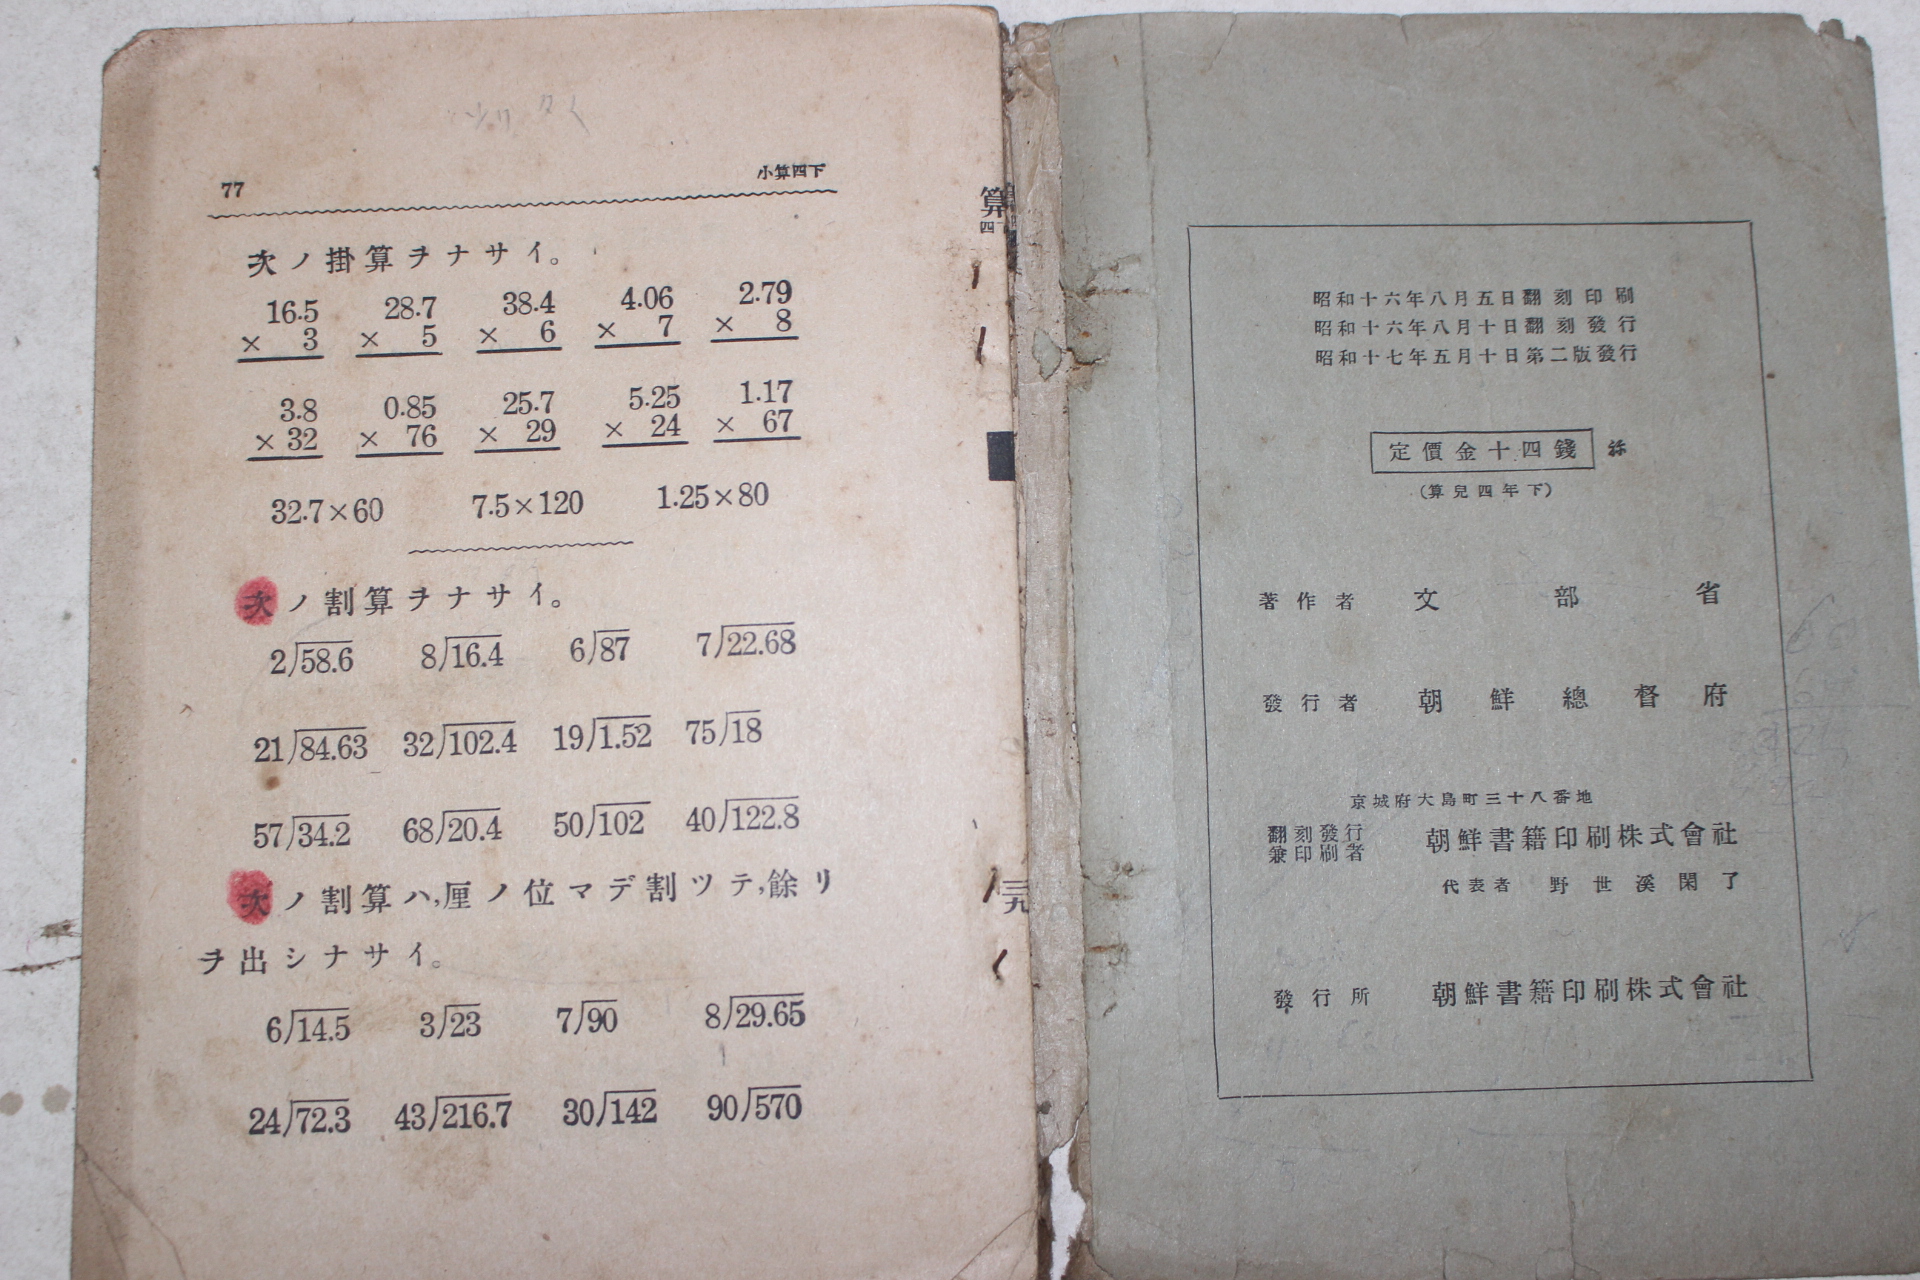 77 小算四下
次ノ掛算ヲナサイ。
16.5 28.7 38.4 4.06 2.79
× 3 × 5 × 6 × 7 × 8
3.8 0.85 25.7 5.25 1.17
× 32 × 76 × 29 × 24 × 67
32.7×60 7.5×120 1.25×80
次ノ割算ヲナサイ。
2)58.6 8)16.4 6)87 7)22.68
21)84.63 32)102.4 19)1.52 75)18
57)34.2 68)20.4 50)102 40)122.8
次ノ割算ハ,厘ノ位マデ割ツテ,餘リ
ヲ出シナサイ。
6)14.5 3)23 7)90 8)29.65
24)72.3 43)216.7 30)142 90)570
算
四下
三九
昭和十六年八月五日翻刻印刷
昭和十六年八月十日翻刻發行
昭和十七年五月十日第二版發行
定價金十四錢
(算兒四年下)
著作者 文部省
發行者 朝鮮總督府
京城府大島町三十八番地
翻刻發行
兼印刷者 朝鮮書籍印刷株式會社
代表者 野世溪閑了
發行所 朝鮮書籍印刷株式會社